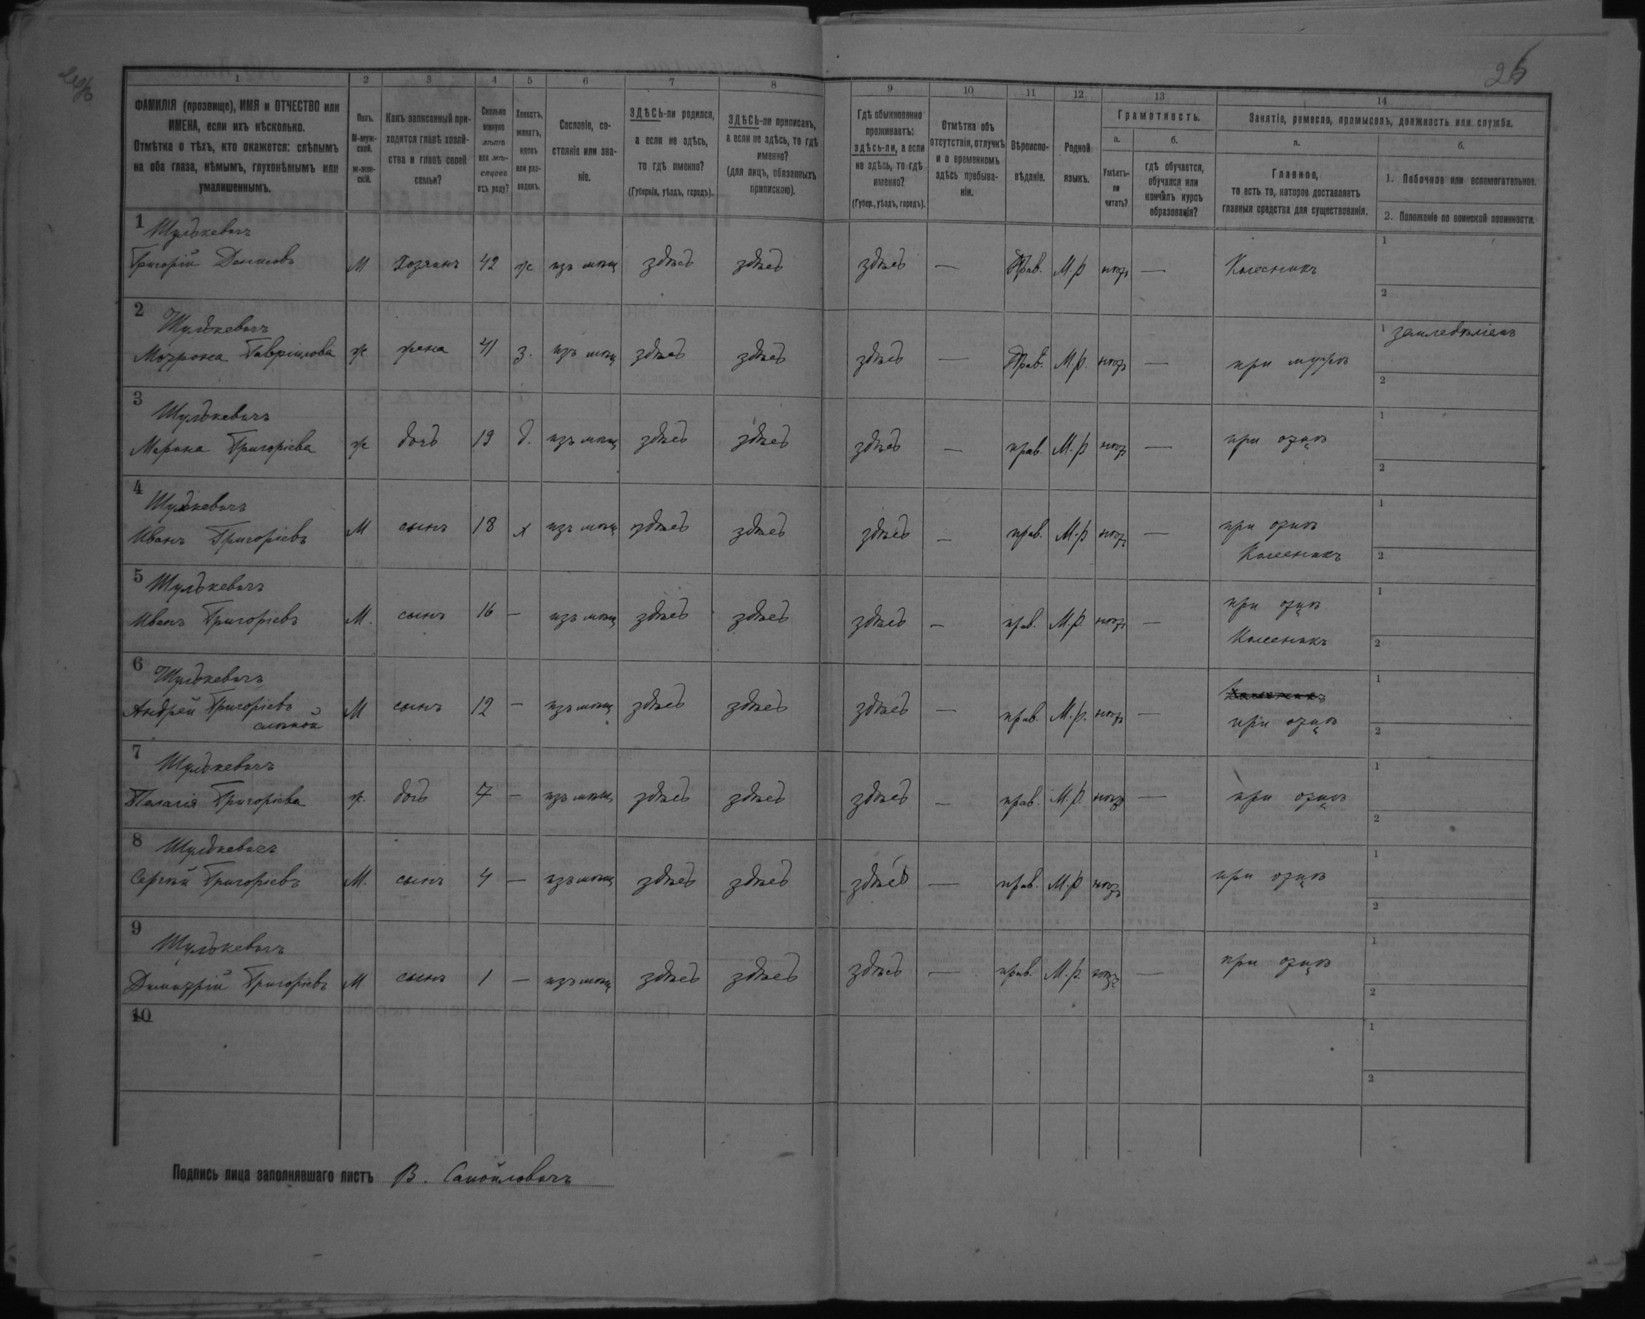 25
1 2 3 4 5 6 7 8 9 10 11 12 13 14
ФАМИЛІЯ (прозвище), ИМЯ и ОТЧЕСТВО или ИМЕНА, если ихъ нѣсколько.
Отмѣтка о тѣхъ, кто окажется: слѣпымъ на оба глаза, нѣмымъ, глухонѣмымъ или умалишеннымъ.
Полъ. М-мужской. Ж-женскій.
Какъ записанный приходится главѣ хозяйства и главѣ своей семьи?
Сколько минуло лѣтъ или мѣсяцевъ отъ роду?
Холостъ, женатъ, вдовъ или разведенъ.
Сословіе, состояніе или званіе.
ЗДѢСЬ-ли родился, а если не здѣсь, то гдѣ именно? (Губернія, уѣздъ, городъ).
ЗДѢСЬ-ли приписанъ, а если не здѣсь, то гдѣ именно? (для лицъ, обязанныхъ припискою).
Гдѣ обыкновенно проживаетъ: здѣсь-ли, а если не здѣсь, то гдѣ именно? (Губер., уѣздъ, городъ).
Отмѣтка объ отсутствіи, отлучкѣ и о временномъ здѣсь пребываніи.
Вѣроисповѣданіе.
Родной языкъ.
Грамотность.
а. Умѣетъ-ли читать?
б. гдѣ обучается, обучался или кончилъ курсъ образованія?
Занятіе, ремесло, промыселъ, должность или служба.
а. Главное, то есть то, которое доставляетъ главныя средства для существованія.
б. 1. Побочное или вспомогательное.
2. Положеніе по воинской повинности.
1 Шулькевичъ
Григорій Денисовъ М хозяинъ 42 ж изъ мѣщ здѣсь здѣсь здѣсь — Прав. М.р нѣтъ — Колесникъ 1 2
2 Шулькевичъ
Мотрона Гавріилова ж жена 41 з. изъ мѣщ здѣсь здѣсь здѣсь — Прав. М.р. нѣтъ — при мужѣ 1 земледѣліемъ 2
3 Шулькевичъ
Марина Григоріева ж дочь 19 д. изъ мѣщ здѣсь здѣсь здѣсь — прав. М.р нѣтъ — при отцѣ 1 2
4 Шулькевичъ
Иванъ Григоріевъ М сынъ 18 х изъ мѣщ здѣсь здѣсь здѣсь — прав. М.р нѣтъ — при отцѣ
Колесникъ 1 2
5 Шулькевичъ
Иванъ Григоріевъ М. сынъ 16 — изъ мѣщ здѣсь здѣсь здѣсь — прав. М.р. нѣтъ — при отцѣ
Колесникъ 1 2
6 Шулькевичъ
Андрей Григоріевъ
слѣпой М сынъ 12 — изъ мѣщ здѣсь здѣсь здѣсь — прав. М.р. нѣтъ — при отцѣ 1 2
7 Шулькевичъ
Пелагія Григоріева ж. дочь 7 — изъ мѣщ здѣсь здѣсь здѣсь — прав. М.р. нѣтъ — при отцѣ 1 2
8 Шулькевичъ
Сергѣй Григоріевъ М. сынъ 4 — изъ мѣщ здѣсь здѣсь здѣсь — прав. М.р. нѣтъ при отцѣ 1 2
9 Шулькевичъ
Димитрій Григоріевъ М сынъ 1 — изъ мѣщ здѣсь здѣсь здѣсь — прав. М.р. нѣтъ — при отцѣ 1 2
10 1 2
Подпись лица заполнявшаго листъ В. Самойловичъ